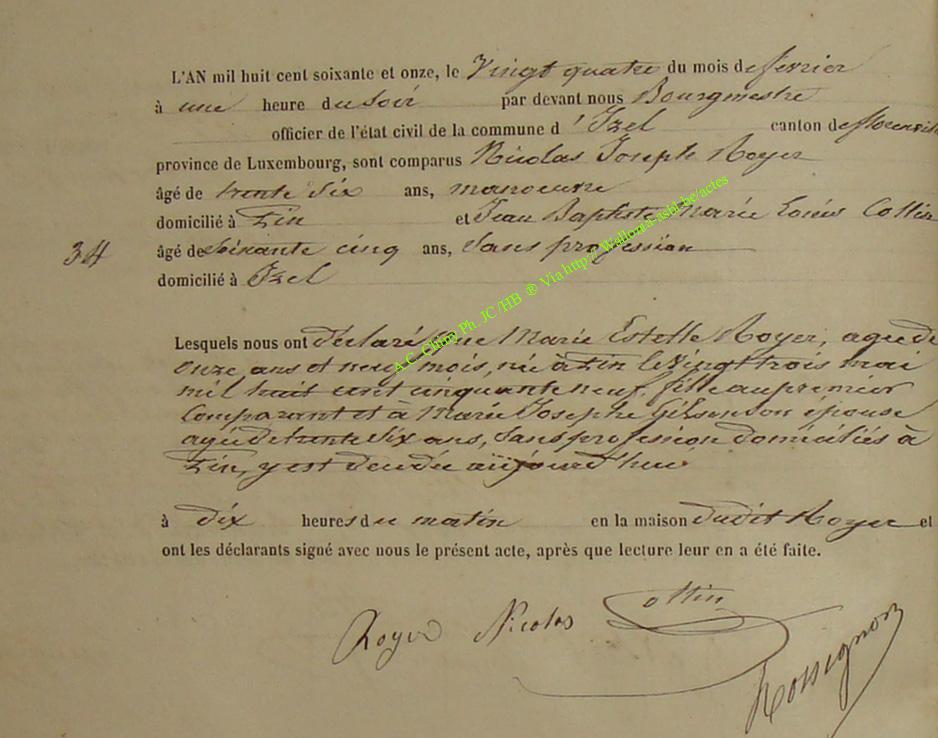 L'AN mil huit cent soixante et onze, le Vingt quatre du mois de fevrier
à une heure du Soir par devant nous Bourgmestre
officier de l'état civil de la commune d'Izel canton de florenville
province de Luxembourg, sont comparus Nicolas Joseph Royer
âgé de trente Six ans, manoeuvre
domicilié à Pin et Jean Baptiste Marie Louis Cottin
34 âgé de Soixante cinq ans, Sans profession
domicilié à Izel
Lesquels nous ont déclaré que Marie Estelle Royer, agée de
onze ans et neuf mois, née à Pin le Vingt trois mai
mil huit cent cinquante neuf, fille au premier
Comparant et à Marie Josephe son épouse
agée de trente Six ans, Sans profession domiciliés à
Pin, y est décédée aujourd'hui
à dix heures du matin en la maison dudit Royer et
ont les déclarants signé avec nous le présent acte, après que lecture leur en a été faite.
Royer Nicolas Cottin
Rossignon
A.C. Chiny Ph. JC/HB ® Via http://Wallonia-asbl.be/actes